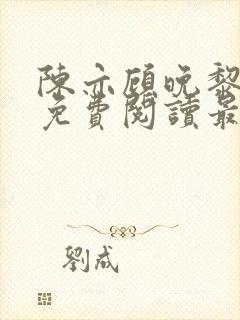 陳亦顧晚黎
免費閱讀最
劉成